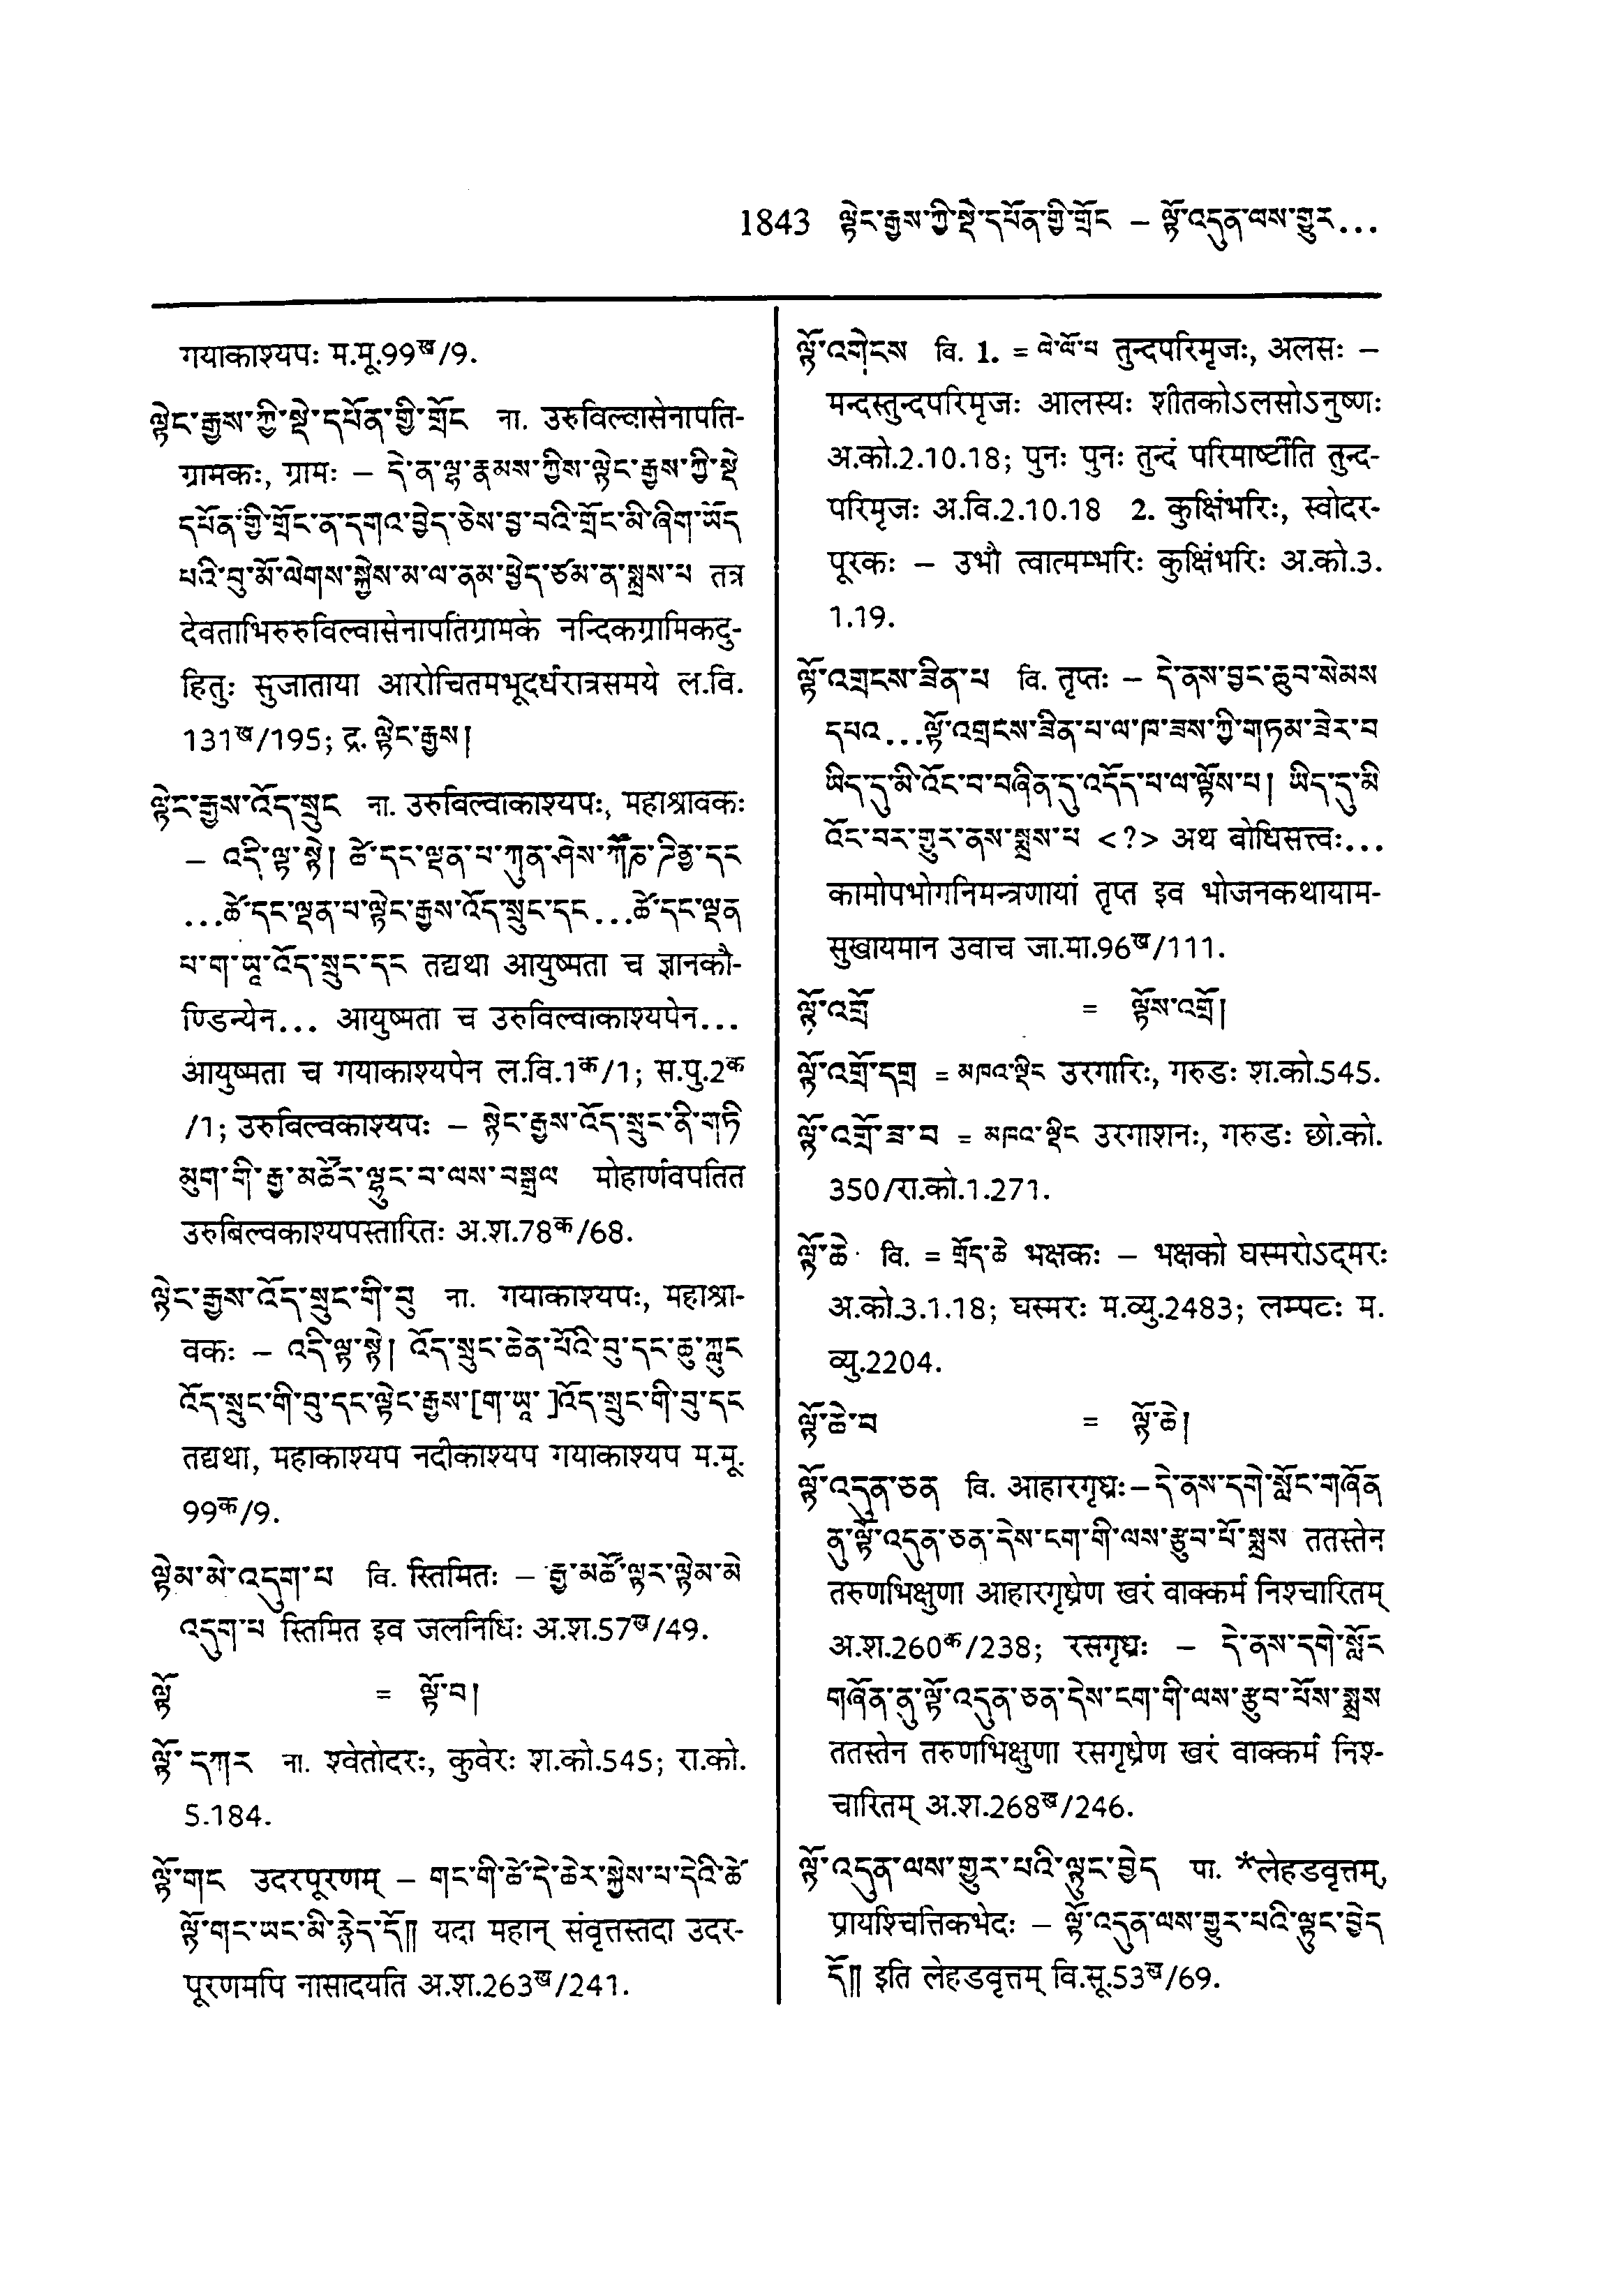 1843 ལྟེང་རྒྱས་ཀྱི་སྡེ་དཔོན་གྱི་གྲོང – ལྟོ་འདུན་ལས་གྱུར...
गयाकाश्यपः म.मू.99ख/9.
ལྟེང་རྒྱས་ཀྱི་སྡེ་དཔོན་གྱི་གྲོང ना. उरुविल्वासेनापति-
ग्रामकः, ग्रामः – དེ་ན་ལྷ་རྣམས་ཀྱིས་ལྟེང་རྒྱས་ཀྱི་སྡེ
དཔོན་གྱི་གྲོང་ན་དགའ་བྱེད་ཅེས་བྱ་བའི་གྲོང་མི་ཞིག་ཡོད
པའི་བུ་མོ་ལེགས་སྐྱེས་མ་ལ་ནམ་ཕྱེད་ཙམ་ན་སྨྲས་པ तत्र
देवताभिरुरुविल्वासेनापतिग्रामके नन्दिकग्रामिकदु-
हितुः सुजाताया आरोचितमभूदर्धरात्रसमये ल.वि.
131ख/195; द्र. ལྟེང་རྒྱས།
ལྟེང་རྒྱས་འོད་སྲུང ना. उरुविल्वाकाश्यपः, महाश्रावकः
– འདི་ལྟ་སྟེ། ཚེ་དང་ལྡན་པ་ཀུན་ཤེས་ཀཽཎྜི་ནྱ་དང
...ཚེ་དང་ལྡན་པ་ལྟེང་རྒྱས་འོད་སྲུང་དང...ཚེ་དང་ལྡན
པ་ག་ཡཱ་འོད་སྲུང་དང तद्यथा आयुष्मता च ज्ञानकौ-
ण्डिन्येन... आयुष्मता च उरुविल्वाकाश्यपेन...
आयुष्मता च गयाकाश्यपेन ल.वि.1क/1; स.पु.2क
/1; उरुविल्वकाश्यपः – སྟེང་རྒྱས་འོད་སྲུང་ནི་གཏི
མུག་གི་རྒྱ་མཚོར་ལྷུང་བ་ལས་བསྒྲལ मोहार्णवपतित
उरुबिल्वकाश्यपस्तारितः अ.श.78क/68.
ལྟེང་རྒྱས་འོད་སྲུང་གི་བུ ना. गयाकाश्यपः, महाश्रा-
वकः – འདི་ལྟ་སྟེ། འོད་སྲུང་ཆེན་པོའི་བུ་དང་ཆུ་ཀླུང
འོད་སྲུང་གི་བུ་དང་ལྟེང་རྒྱས་[ག་ཡཱ་]འོད་སྲུང་གི་བུ་དང
तद्यथा, महाकाश्यप नदीकाश्यप गयाकाश्यप म.मू.
99क/9.
ལྟེམ་མེ་འདུག་པ वि. स्तिमितः – རྒྱ་མཚོ་ལྟར་ལྟེམ་མེ
འདུག་པ स्तिमित इव जलनिधिः अ.श.57ख/49.
ལྟོ = ལྟོ་བ།
ལྟོ་དཀར ना. श्वेतोदरः, कुवेरः श.को.545; रा.को.
5.184.
ལྟོ་གང उदरपूरणम् – གང་གི་ཚེ་དེ་ཆེར་སྐྱེས་པ་དེའི་ཚེ
ལྟོ་གང་ཡང་མི་རྙེད་དོ༎ यदा महान् संवृत्तस्तदा उदर-
पूरणमपि नासादयति अ.श.263ख/241.
ལྟོ་འགེངས वि. 1. = ལེ་ལོ་པ तुन्दपरिमृजः, अलसः –
मन्दस्तुन्दपरिमृजः आलस्यः शीतकोऽलसोऽनुष्णः
अ.को.2.10.18; पुनः पुनः तुन्दं परिमार्ष्टीति तुन्द-
परिमृजः अ.वि.2.10.18 2. कुक्षिंभरिः, स्वोदर-
पूरकः – उभौ त्वात्मम्भरिः कुक्षिंभरिः अ.को.3.
1.19.
ལྟོ་འགྲངས་ཟིན་པ वि. तृप्तः – དེ་ནས་བྱང་ཆུབ་སེམས
དཔའ...ལྟོ་འགྲངས་ཟིན་པ་ལ་ཁ་ཟས་ཀྱི་གཏམ་ཟེར་བ
ཡིད་དུ་མི་འོང་བ་བཞིན་དུ་འདོད་པ་ལ་ལྟོས་པ། ཡིད་དུ་མི
འོང་བར་གྱུར་ནས་སྨྲས་པ <?> अथ बोधिसत्त्वः...
कामोपभोगनिमन्त्रणायां तृप्त इव भोजनकथायाम-
सुखायमान उवाच जा.मा.96ख/111.
ལྟོ་འགྲོ = ལྟོས་འགྲོ།
ལྟོ་འགྲོ་དགྲ = མཁའ་ལྡིང उरगारिः, गरुडः श.को.545.
ལྟོ་འགྲོ་ཟ་བ = མཁའ་ལྡིང उरगाशनः, गरुडः छो.को.
350/रा.को.1.271.
ལྟོ་ཆེ वि. = གྲོད་ཆེ भक्षकः – भक्षको घस्मरोऽद्मरः
अ.को.3.1.18; घस्मरः म.व्यु.2483; लम्पटः म.
व्यु.2204.
ལྟོ་ཆེ་བ = ལྟོ་ཆེ།
ལྟོ་འདུན་ཅན वि. आहारगृध्रः – དེ་ནས་དགེ་སློང་གཞོན
ནུ་ལྟོ་འདུན་ཅན་དེས་ངག་གི་ལས་རྩུབ་པོ་སྨྲས ततस्तेन
तरुणभिक्षुणा आहारगृध्रेण खरं वाक्कर्म निश्चारितम्
अ.श.260क/238; रसगृध्रः – དེ་ནས་དགེ་སློང
གཞོན་ནུ་ལྟོ་འདུན་ཅན་དེས་ངག་གི་ལས་རྩུབ་པོས་སྨྲས
ततस्तेन तरुणभिक्षुणा रसगृध्रेण खरं वाक्कर्म निश-
चारितम् अ.श.268ख/246.
ལྟོ་འདུན་ལས་གྱུར་པའི་ལྟུང་བྱེད पा. *लेहडवृत्तम्,
प्रायश्चित्तिकभेदः – ལྟོ་འདུན་ལས་གྱུར་པའི་ལྟུང་བྱེད
དོ༎ इति लेहडवृत्तम् वि.सू.53ख/69.